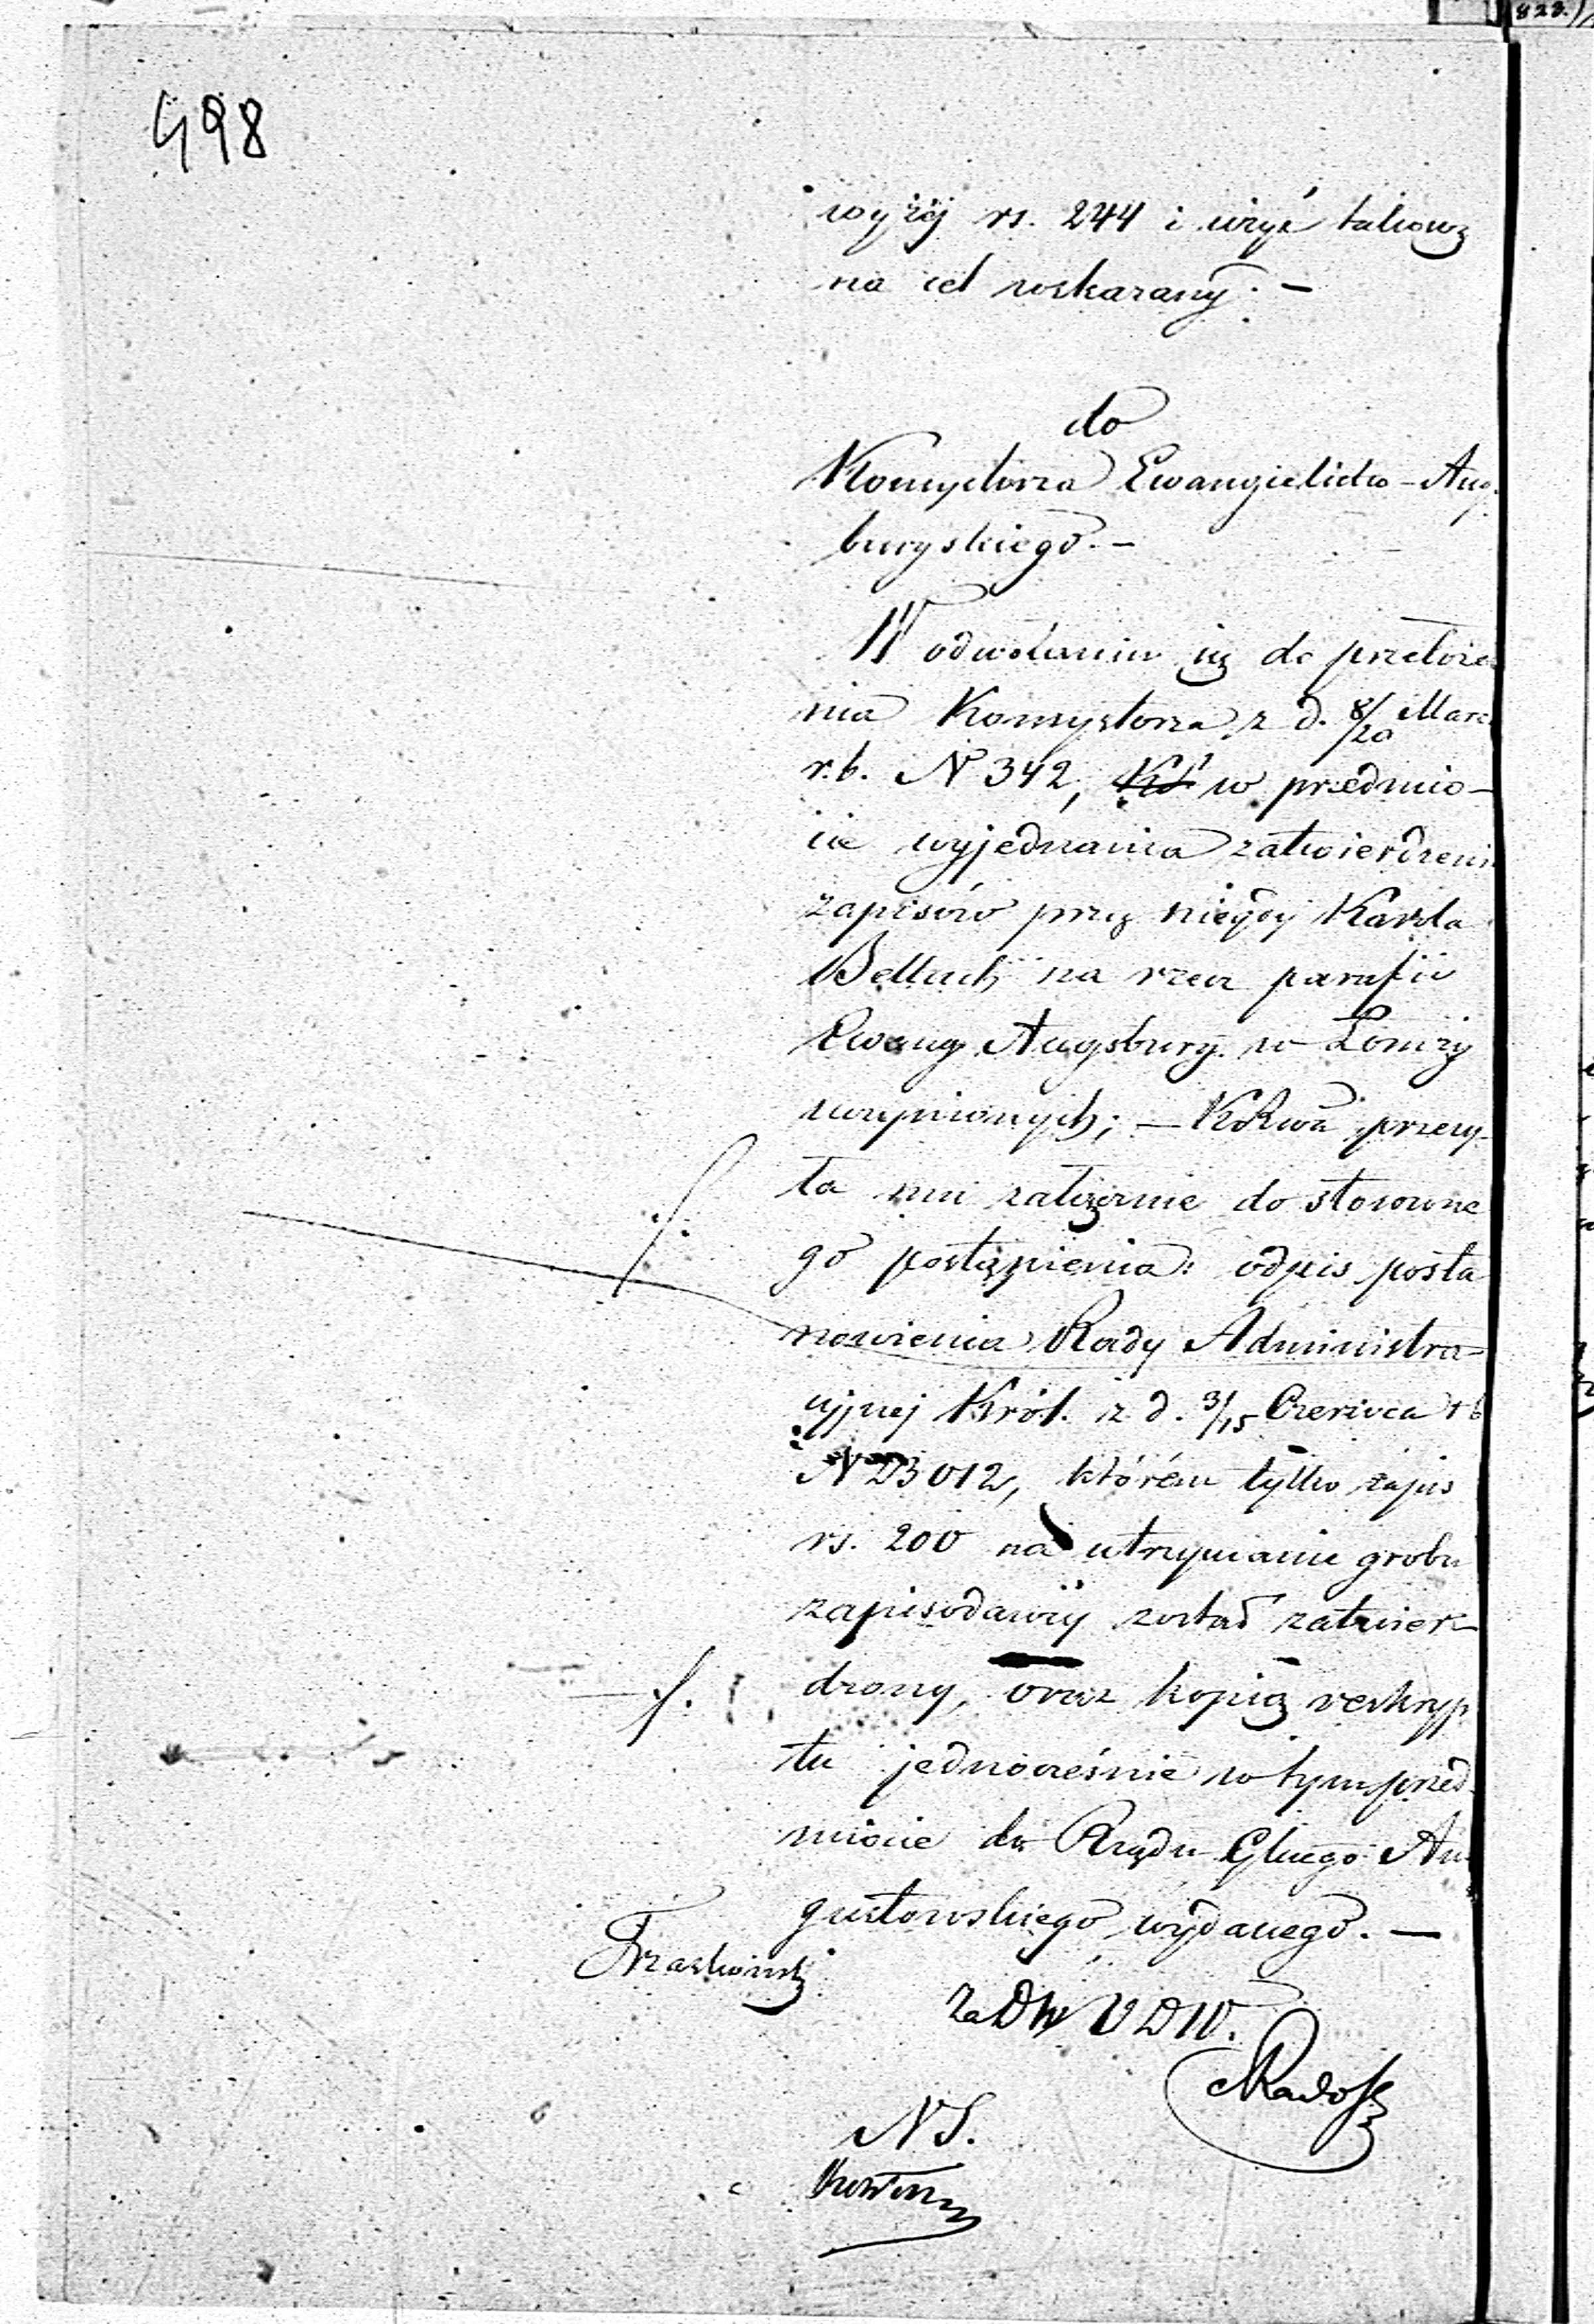 823.
498
wyżéj rs. 244 i użyć takową
na cel wskazany. —
do
Konsystorza Ewangielicko-Aug
burgskiego. —
W odwołaniu się do przełoże
nia Konsystorza z d. 8/20 Marc
r.b. N 342, w przedmio-
cie wyjednania zatwierdzeni
zapisów przez niegdy Karola
Belluch na rzecz parafii
Ewang Augsburg. w Łomży
uczynionych; — przesy
ła mu załącznie do stosowne
go postąpienia: odpis posta
nowienia Rady Administra-
cyjnej Król. z d. 3/15 Czerwca rb
N 23012, którém tylko zapis
rs. 200 na utrzymanie grobu
zapisodawcy został zatwier-
dzony, oraz kopią reskryp
tu jednocześnie w tym przed-
miocie do Rządu Gbnego Au
gustowskiego wydanego. —
za D W
N S.